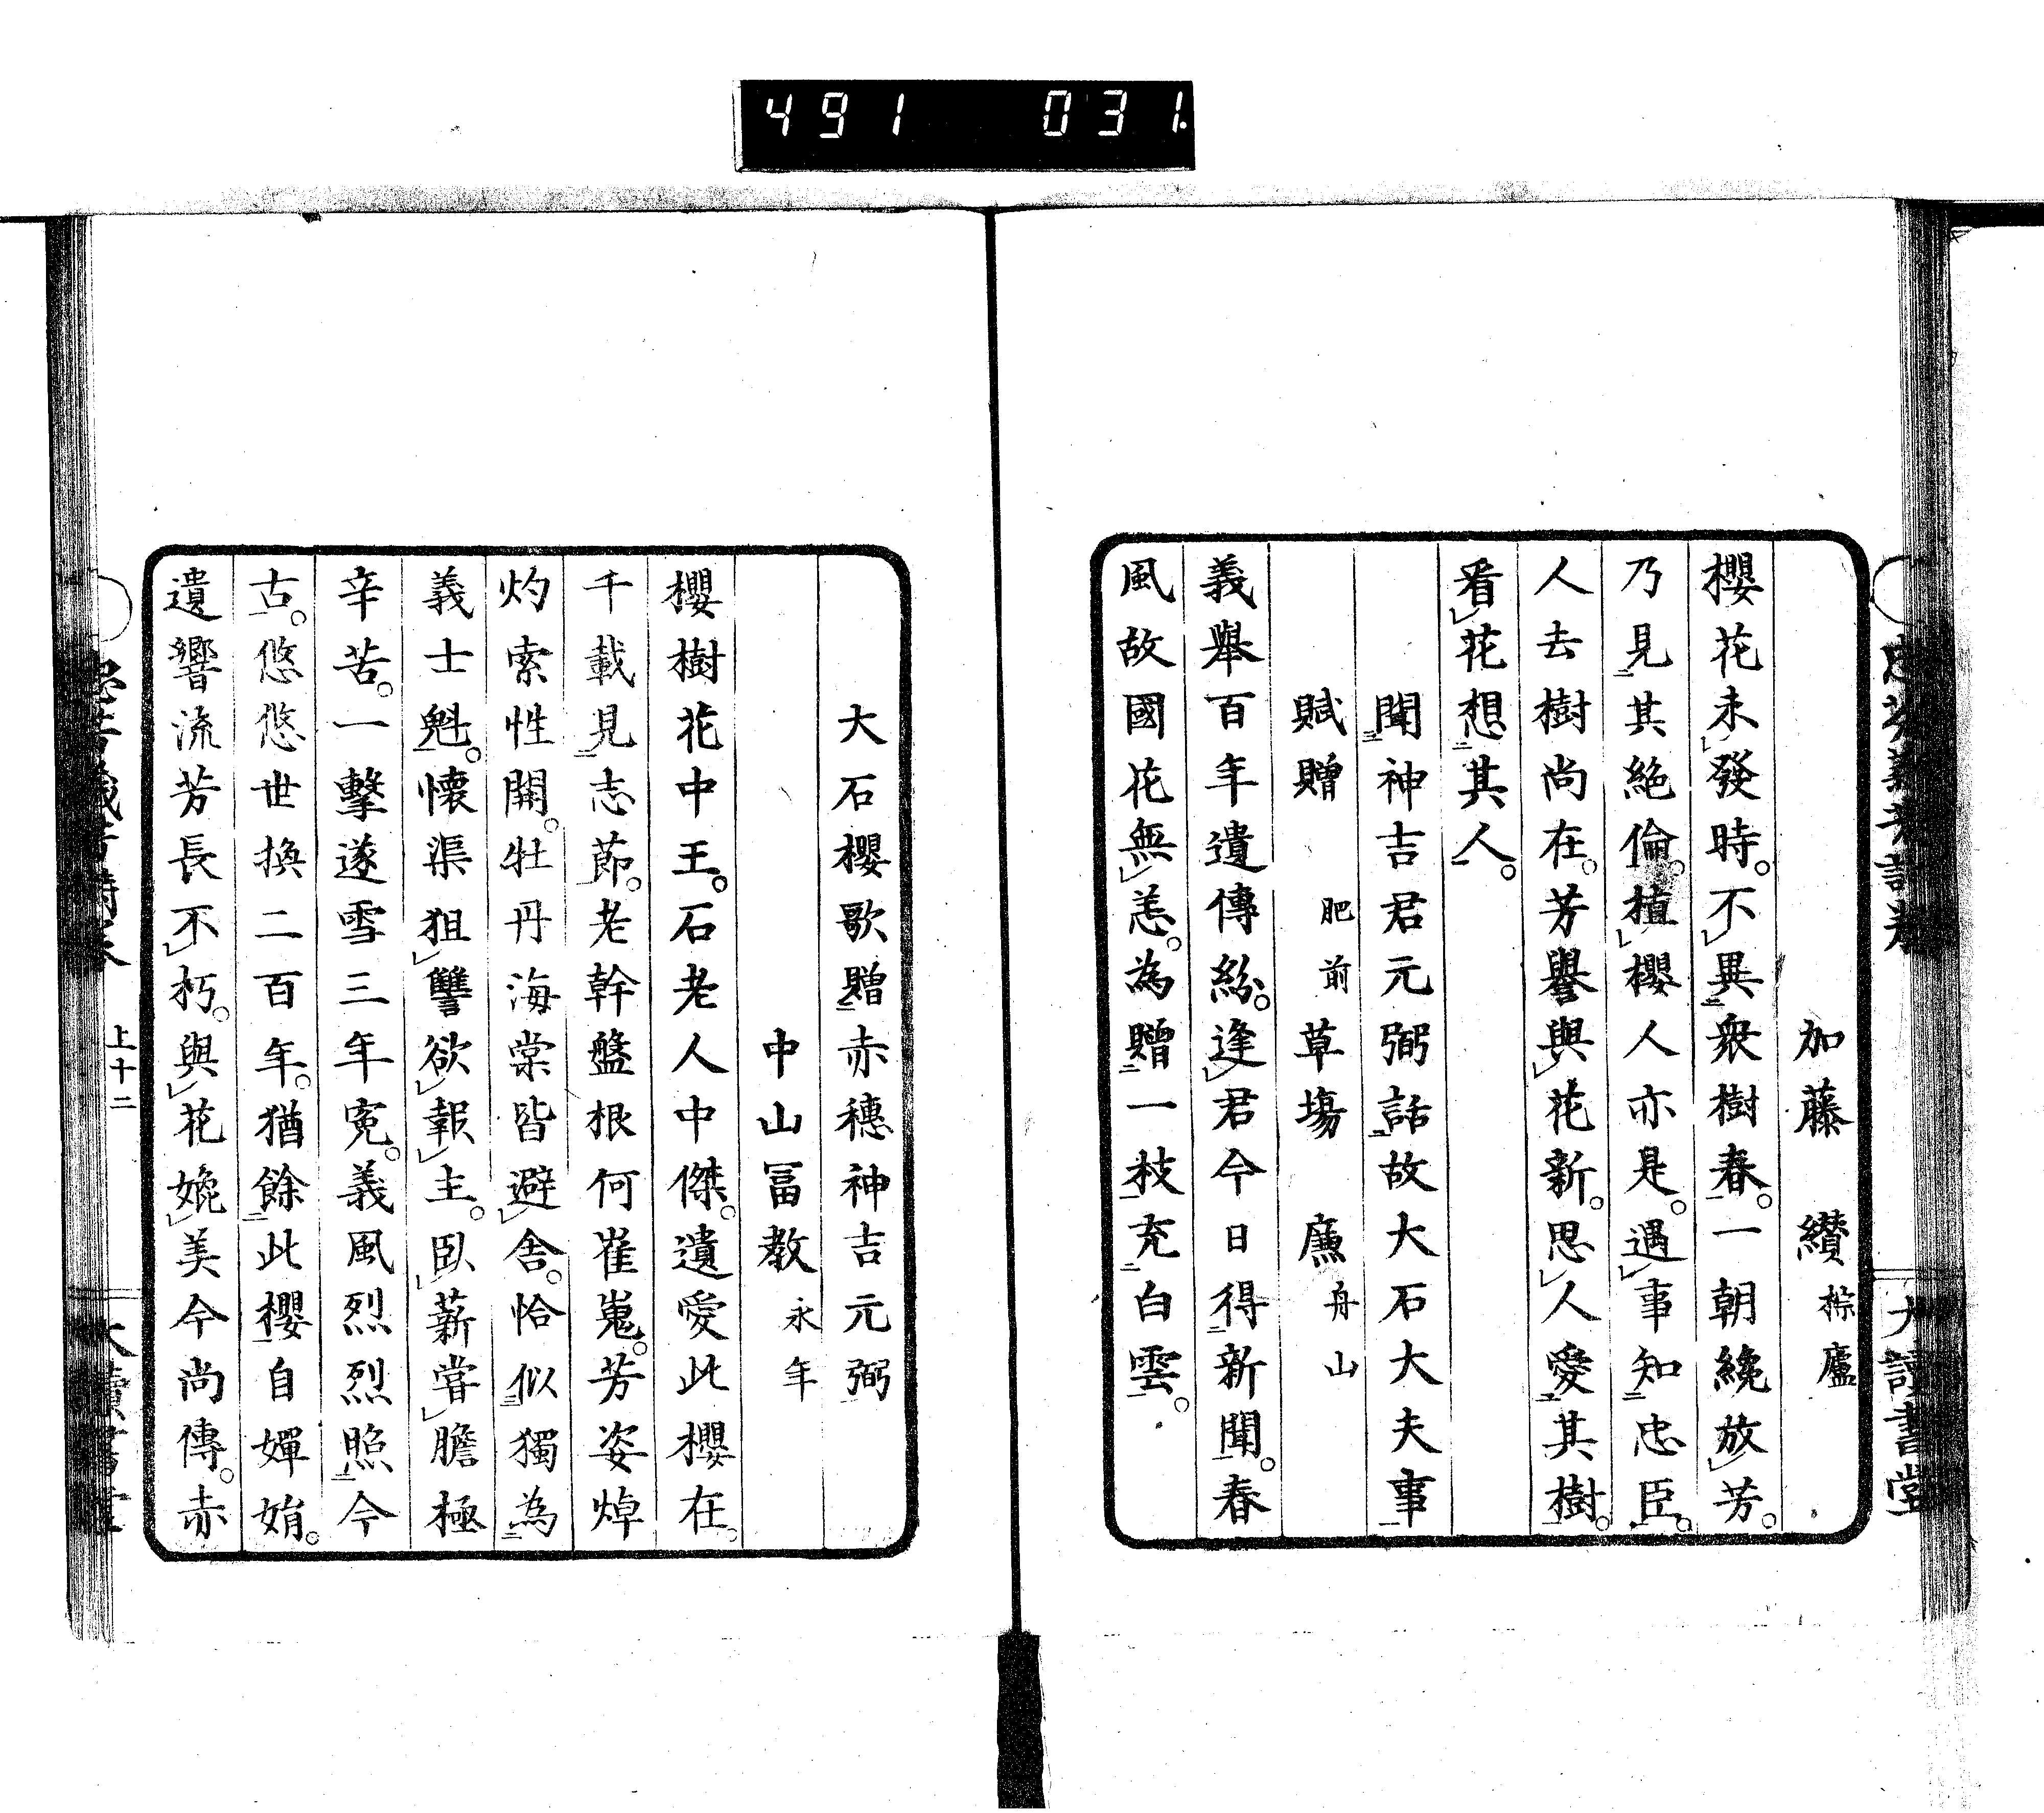 491 031.
加藤 纘 棕廬
櫻花未發時。不異衆樹春。一朝纔放芳。
乃見其絶倫。植櫻人亦是。遇事知忠臣。
人去樹尚在。芳譽與花新。思人愛其樹。
看花想其人。
聞神吉君元弼話故大石大夫事
賦贈 肥前 草塲 廉 舟山
義舉百年遺傳紛。逢君今日得新聞。春
風故國花無恙。為贈一枝充白雲。
大石櫻歌贈赤穗神吉元弼
中山冨教 永年
櫻樹花中王。石老人中傑。遺愛此櫻在。
千載見志節。老幹盤根何崔嵬。芳姿焯
灼索性開。牡丹海棠皆避舍。恰似獨為
義士魁。懷渠狙讐欲報主。臥薪嘗膽極
辛苦。一擊遂雪三年寃。義風烈烈照今
古。悠悠世換二百年。猶餘此櫻自嬋娟。
遺響流芳長不朽。與花娩美今尚傳。赤
上十二